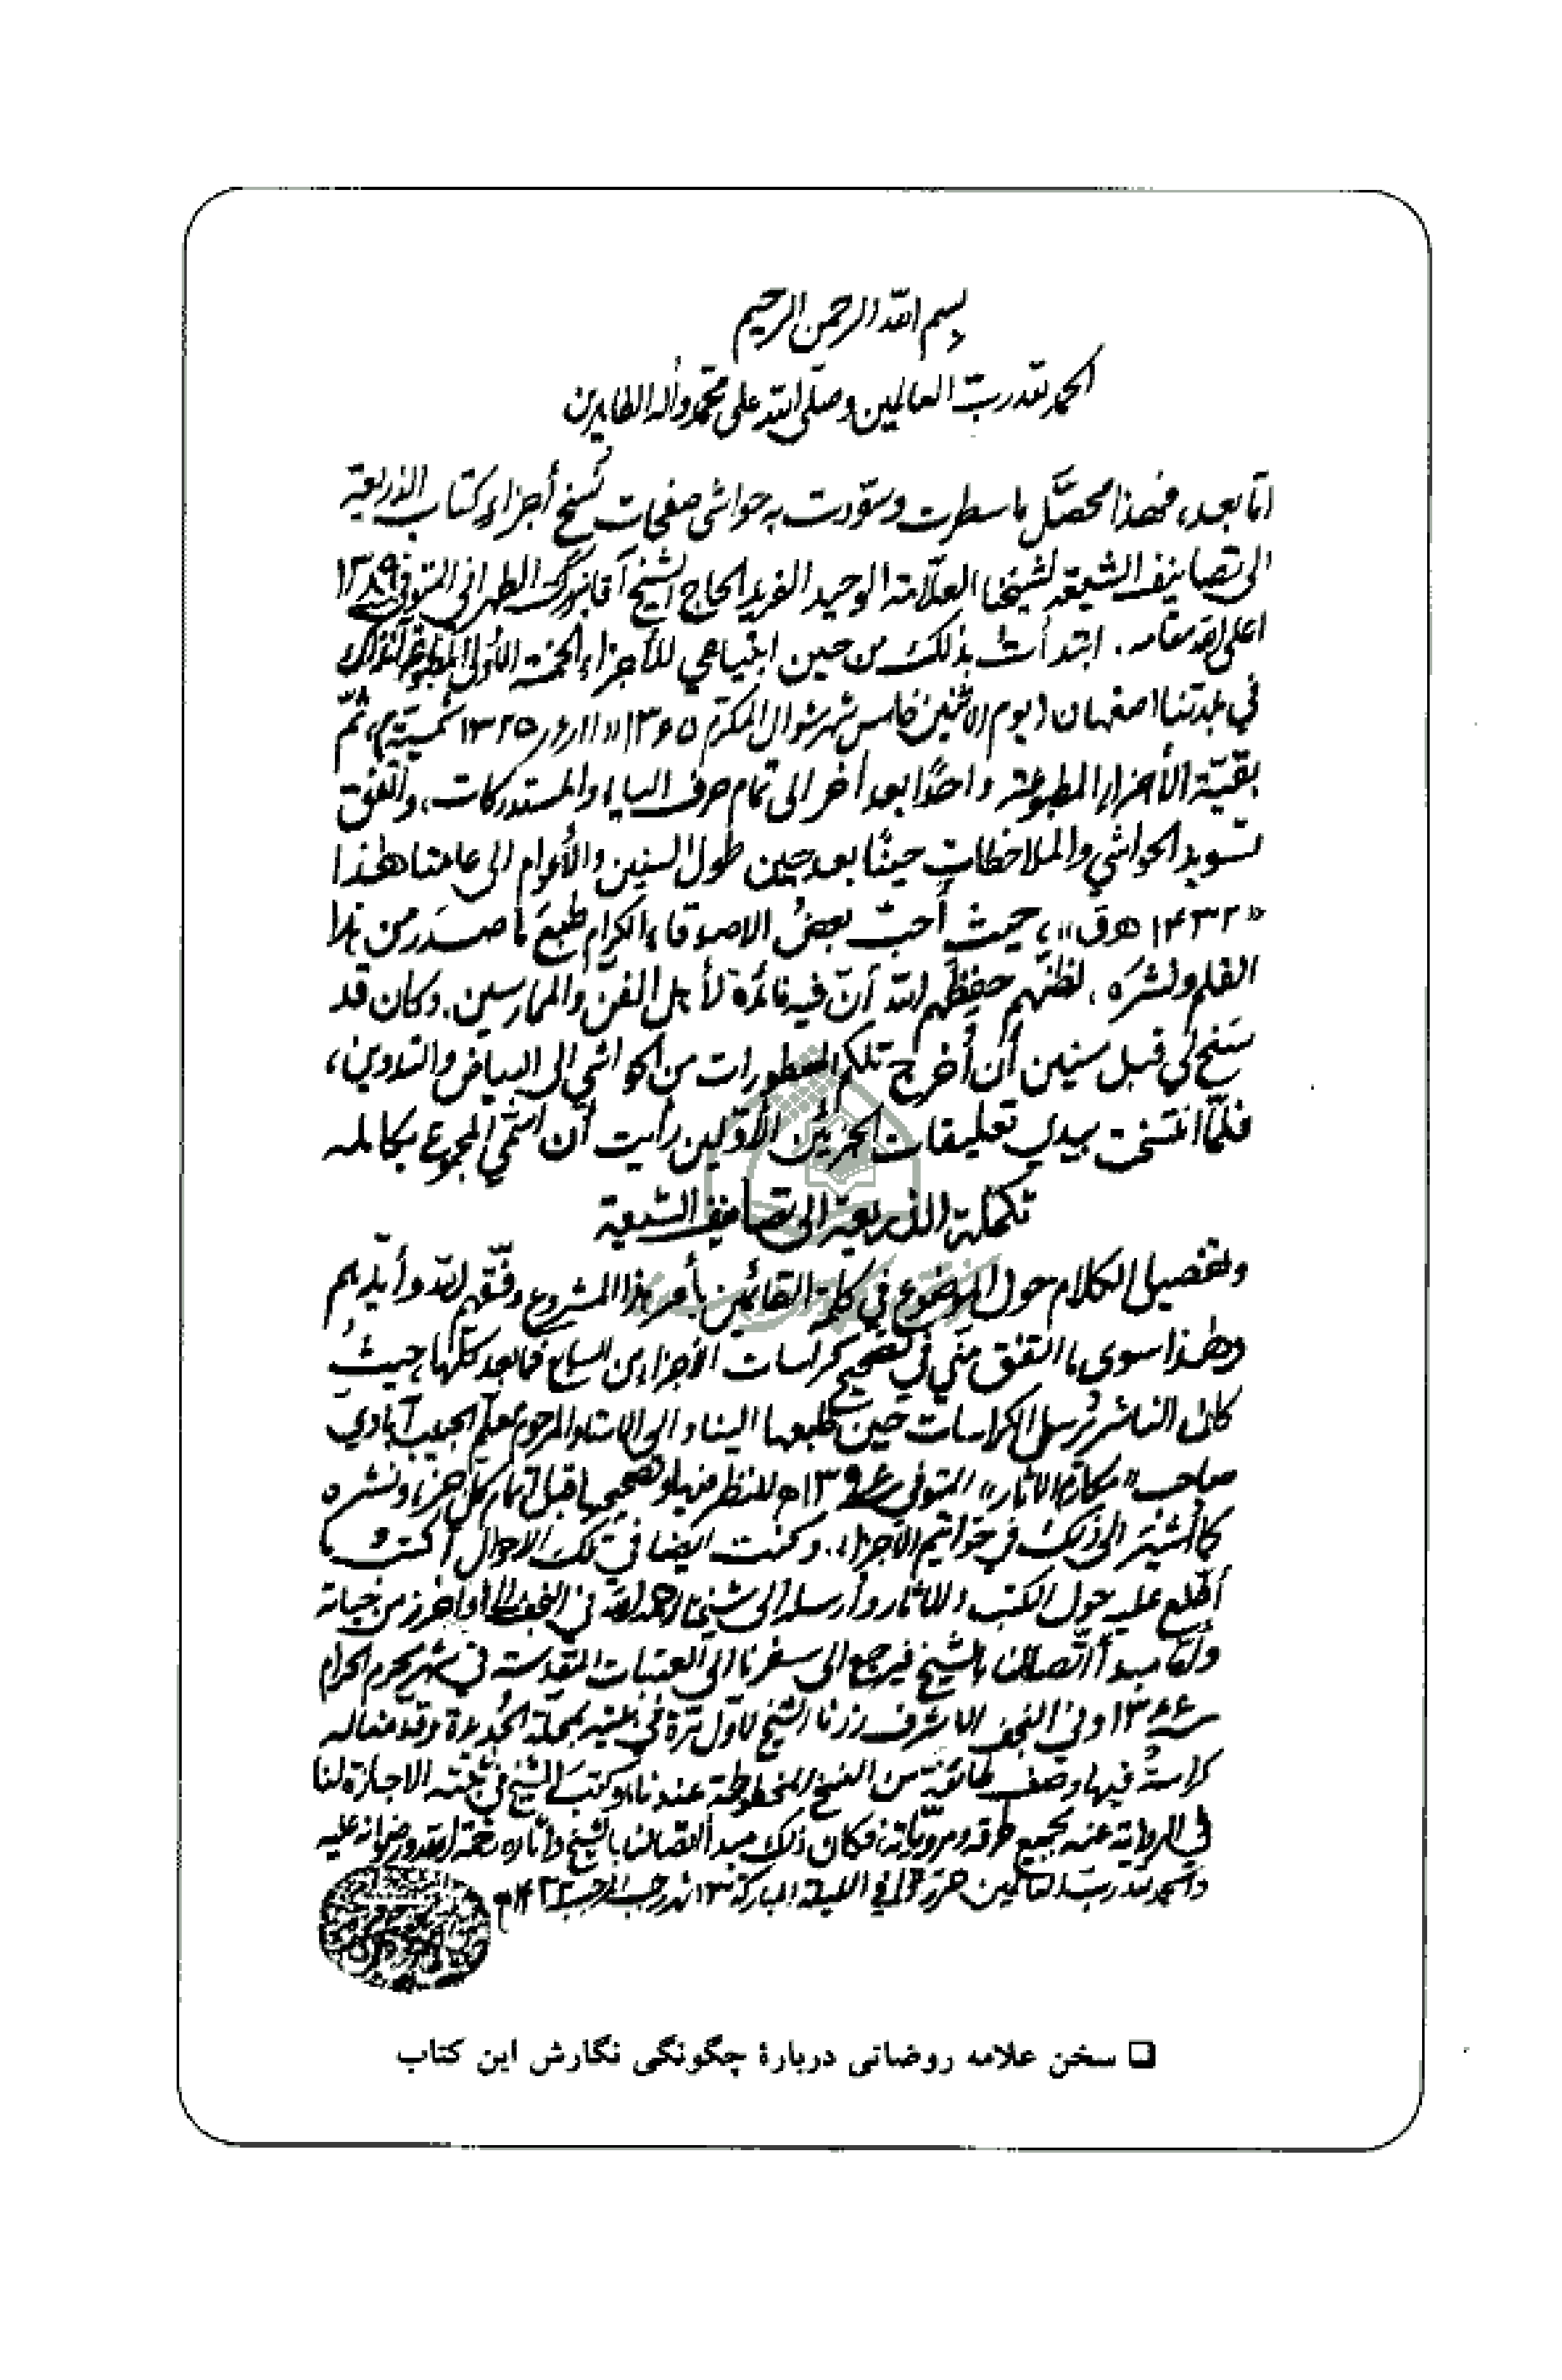 بسم الله الرحمن الرحيم
الحمد لله رب العالمين وصلّى الله على محمّد وآله الطاهرين
امّا بعد، فهذا محصَّل ما سطرت وسوّدت به حواشي صفحات نُسخ أجزاء كتاب الذريعة
الى تصانيف الشيعة لشيخنا العلّامة الوحيد الفريد الحاج الشيخ آقا بزرگ الطهراني المتوفى سنة ١٣٨٩
اعلى الله مقامه. ابتدأت بذلك من حين ابتياعي للأجزاء الخمسة الأولى المطبوعة آنذاك
في بلدتنا اصفهان (يوم الاثنين خامس شهر شوال المكرّم ١٣٦٥ // ١١ر٦ر١٣٢٥ شمسيّة)، ثمّ
بقيّة الأجزاء المطبوعة واحدًا بعد آخر الى تمام حرف الياء والمستدركات، واتّفق
تسويد الحواشي والملاحظات حينًا بعد حين طول السنين والأعوام الى عامنا هذا
«١٤٣٢ هـ ق»، حيث أحبّ بعضُ الاصدقاء الكرام طبعَ ما صدَر من هذا
القلم ونشرَه، لظنّهم حفظهم الله أنّ فيه فائدة لأهل الفنّ والممارسين. وكان قد
سنح لي قبل سنين أن أُخرج تلكم المسطورات من الحواشي الى البياض والتدوين،
فلمّا انتسخت بيدي تعليقات الجزئين الأوّلين رأيت أن اسمّي المجموع بكامله
تكملة الذريعة الى تصانيف الشيعة
وتفصيل الكلام حول الموضوع في كلمة القائمين بأمر هذا المشروع وفّقهم الله وأيّدهم
وهذا سوى ما اتفق منّي في تصحيح كراسات الأجزاء من السابع فما بعد كلّها حيثُ
كان الناشر يُرسل الكراسات حين طبعها الينا والى الاستاد المرحوم معلّم الحبيب آبادي
صاحب «مكارم الآثار» المتوفى سنة ١٣٩٦ هـ للنظر فيها وتصحيحها قبل اتمام كلّ جزء ونشره
كما اُشير الى ذلك في خواتيم الأجزاء. وكنت ايضا في تلك الاحوال أكتب ما
أطّلع عليه حول الكتب والآثار وأرسله الى شيخنا رحمه الله في النجف الى أواخر من حياته
وأمّا مبدأ اتّصالنا بالشيخ فيرجع الى سفرنا الى العتبات المقدسة في شهر محرم الحرام
سنة ١٣٦٦ وفي النجف الاشرف زرنا الشيخ لاوّل مرّة في بيته بمحلة الجُديدة وقدّمنا له
كراسةً فيها وصف طائفة من النسخ المخطوطة عندنا، وكتبَ الشيخ في الاجازة لنا
في الرواية عنه بجميع طرقه ومرويّاته، فكان ذلك مبدأ اتصالنا بالشيخ وآثاره رحمة الله ورضوانه عليه
والحمد لله ربّ العالمين في الليلة المباركة ١٣ شهر رجب المرجب ١٤٣٢
❏ سخن علامه روضاتی دربارهٔ چگونگی نگارش این کتاب